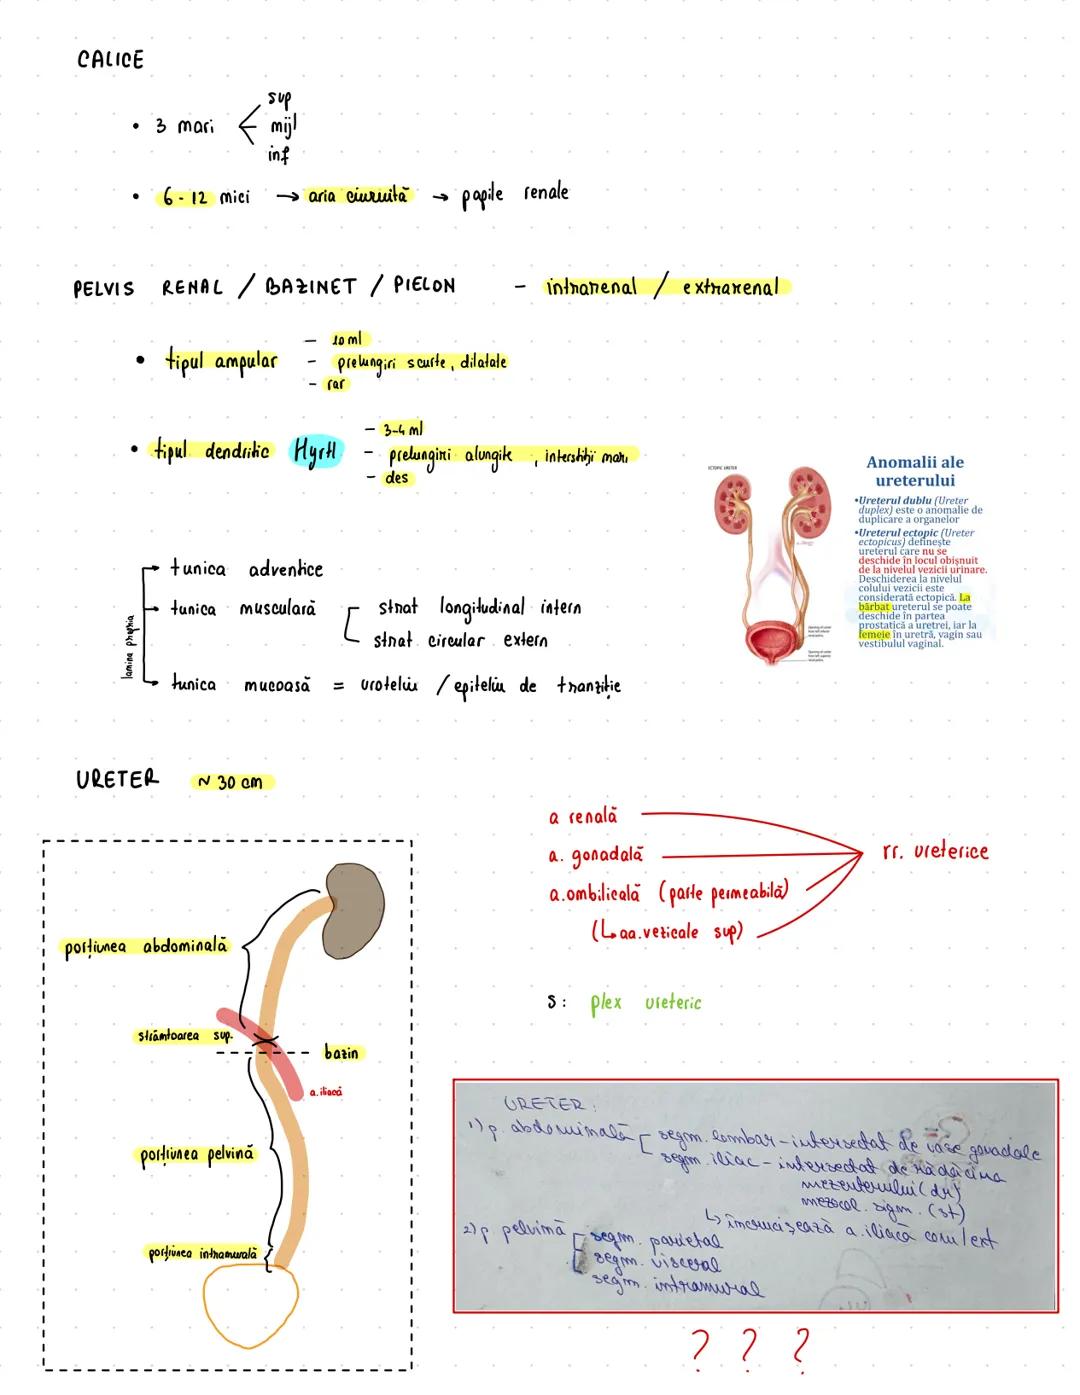 CALICE
sup
• 3 mari mijl
inf
• 6-12 mici → aria ciuruită → papile renale
PELVIS RENAL / BAZINET / PIELON - intrarenal / extrarenal
- 10 ml
• tipul ampular - prelungiri scurte, dilatate
- rar
- 3-4 ml
• tipul dendritic Hyrtl - prelungiri alungite, interstiții mari
- des
ECTOPIC URETER
Anomalii ale
ureterului
•Ureterul dublu (Ureter
duplex) este o anomalie de
duplicare a organelor
•Ureterul ectopic (Ureter
ectopicus) definește
ureterul care nu se
deschide în locul obișnuit
de la nivelul vezicii urinare.
Deschiderea la nivelul
colului vezicii este
considerată ectopică. La
bărbat ureterul se poate
deschide în partea
prostatică a uretrei, iar la
femeie în uretră, vagin sau
vestibulul vaginal.
lamina propria
→ tunica adventice
→ tunica musculară strat longitudinal intern
strat circular extern
→ tunica mucoasă = uroteliu / epiteliu de tranziție
URETER ~ 30 cm
porțiunea abdominală
strâmtoarea sup.
bazin
a. iliacă
porțiunea pelvină
porțiunea intramurală
a renală
a. gonadală
rr. ureterice
a. ombilicală (parte permeabilă)
(↳ aa. vezicale sup)
S: plex ureteric
URETER:
1) p. abdominală segm. lombar - intersectat de vase gonadale
segm. iliac - intersectat de rădăcina
mezenterului (dr)
mezocol. sigm. (st)
↳ încrucișează a. iliacă com/ext
2) p. pelvină segm. parietal
segm. visceral
segm. intramural
? ? ?